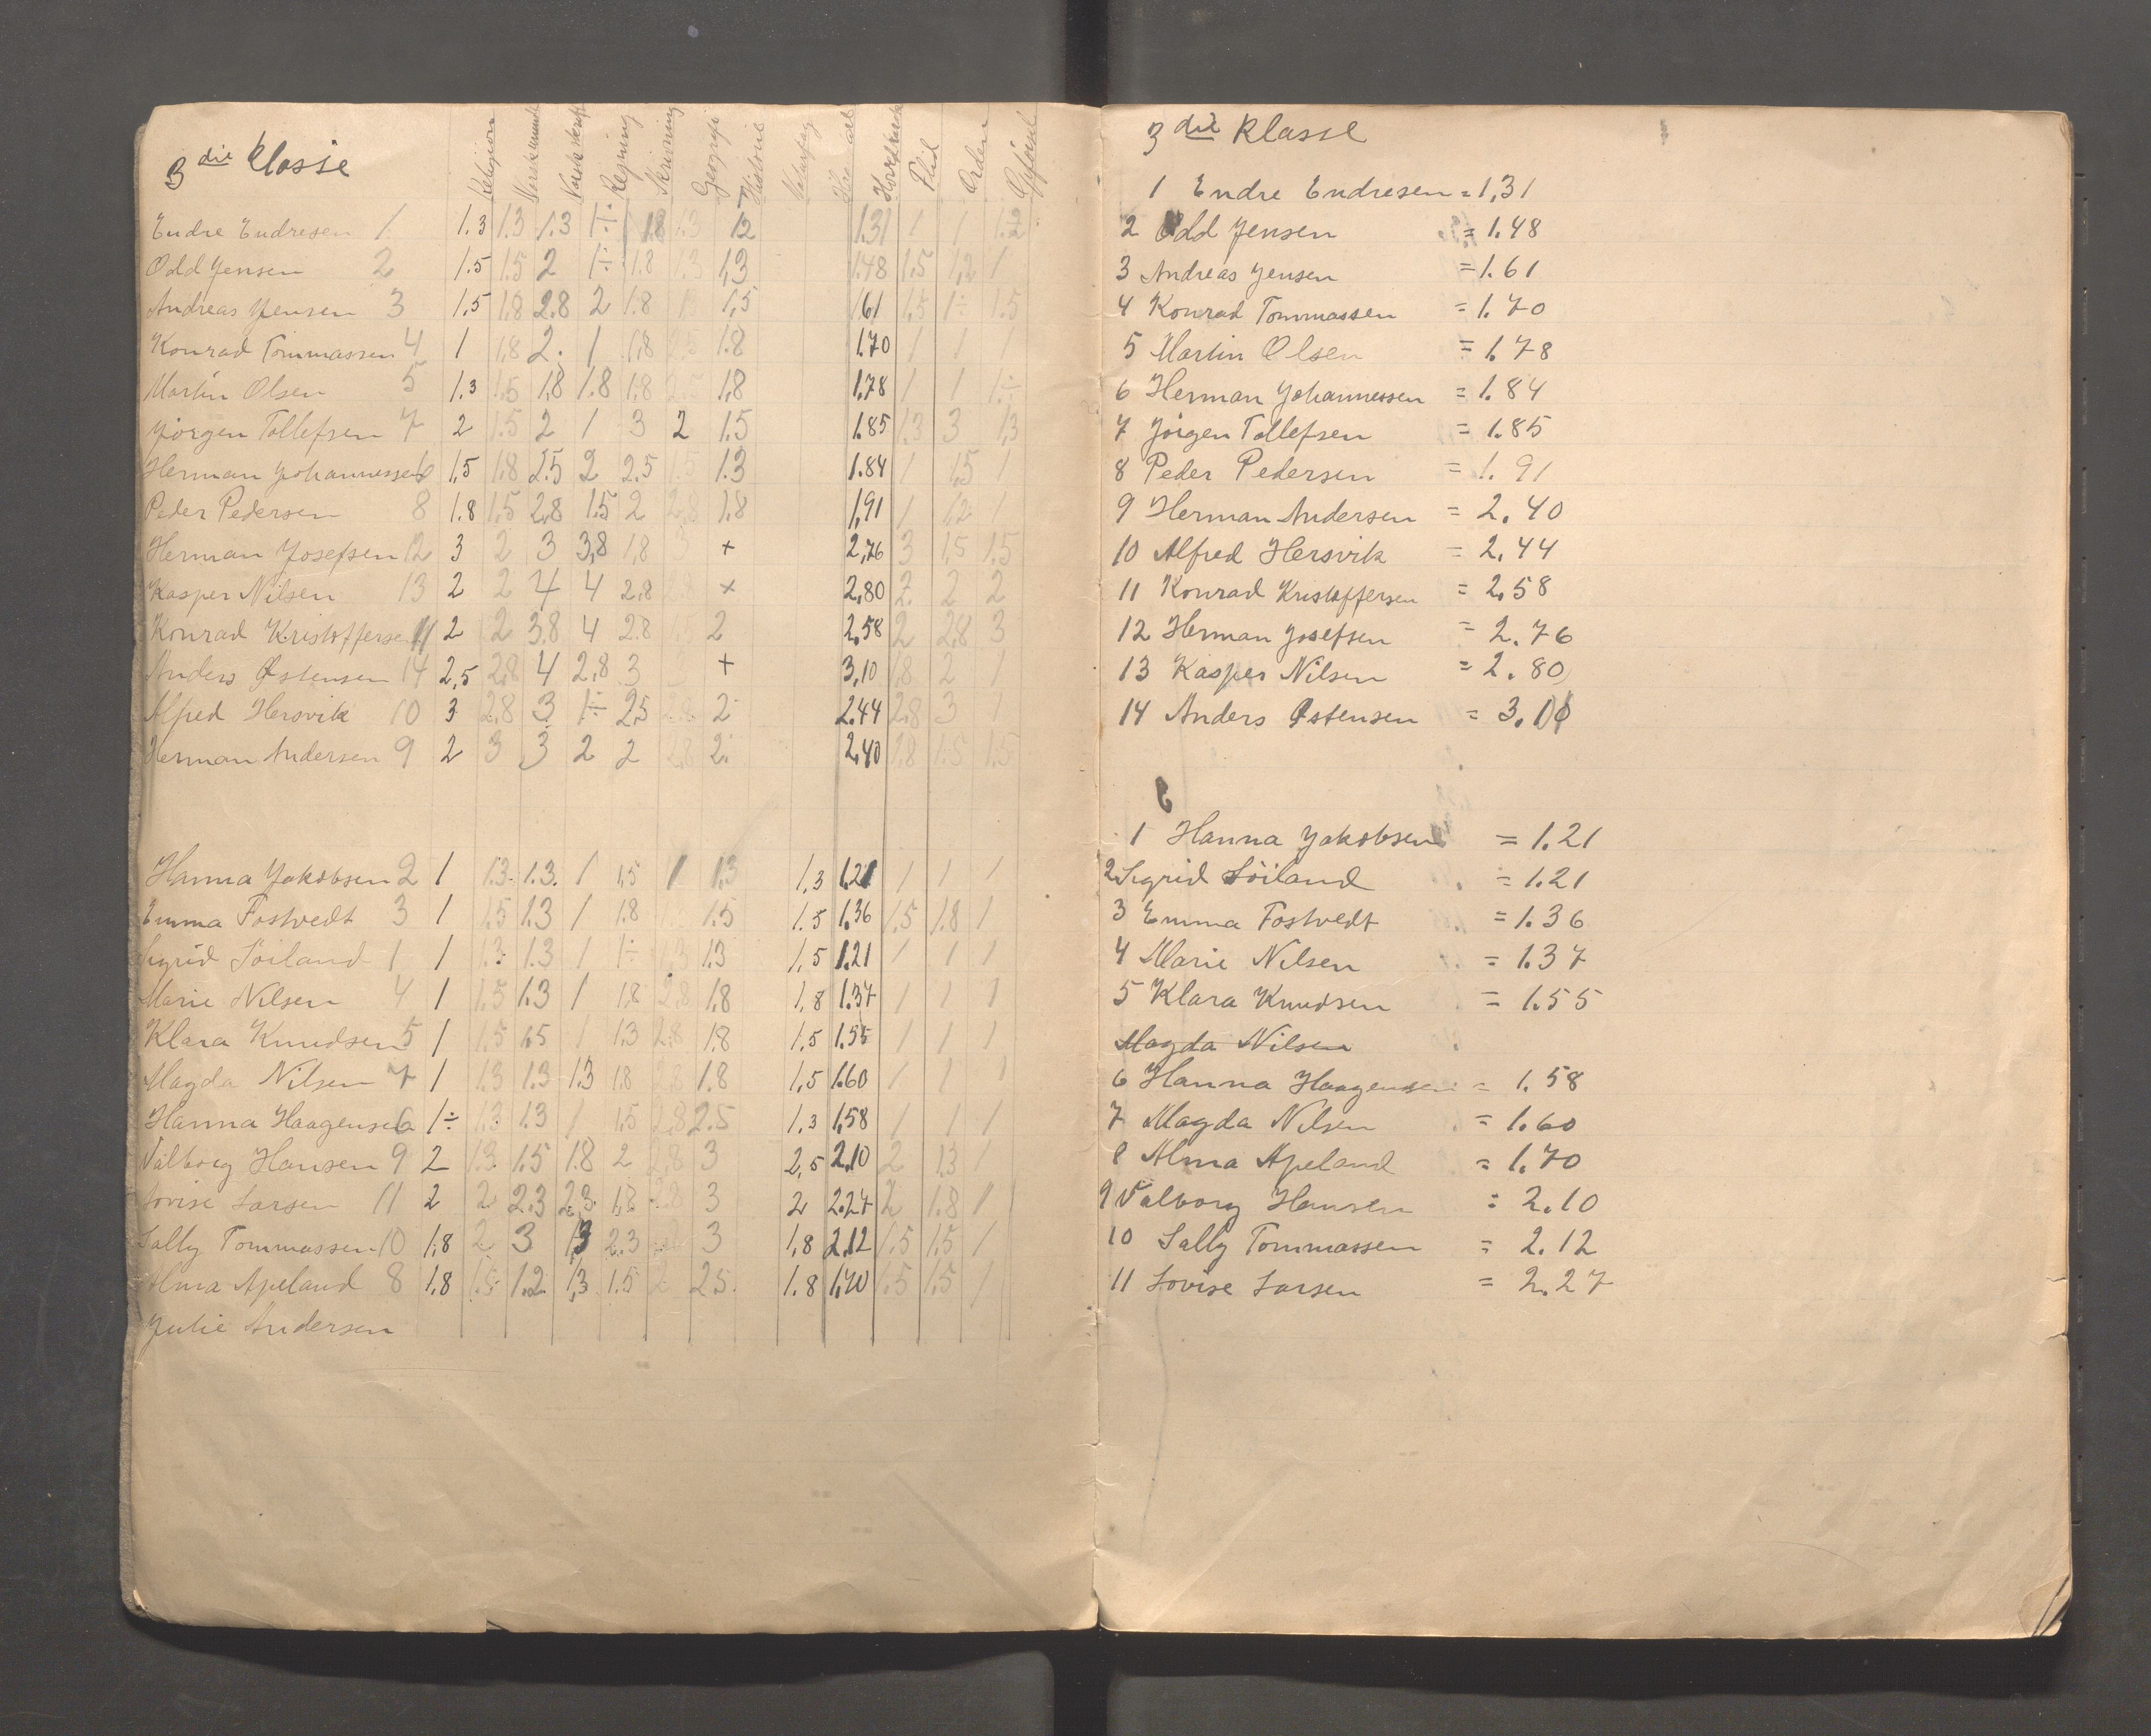 3die klasse
Religion Regning Skrivning Geografi Historie Flid Orden Opførsel
Endre Endresen 1 1.3 1.3 1.3 1÷ 1.8 1.3 12 1.31 1 1 1.2
Odd Jensen 2 1.5 1.5 2 1÷ 1.8 1.3 1,3 1.48 1.5 1,2 1
Andreas Jensen 3 1,5 1,8 2.8 2 1.8 1,5 1.61 1,5 1÷ 1.5
Konrad Tommassen 4 1 1,8 2. 1 1,8 2.5 1.8 1.70 1 1 1
Martin Olsen 5 1.3 1.5 1,8 1.8 1,8 2.5 1,8 1,78 1 1 1÷
Jörgen Tollefsen 7 2 1.5 2 1 3 2 1.5 1.85 1.3 3 1,3
Herman Johannessen 6 1,5 1,8 2.5 2 2.5 1.5 1.3 1.84 1 1,5 1
Peder Pedersen 8 1.8 1,5 2,8 1.5 2 2,8 1.8 1,91 1 1,2 1
Herman Josefsen 12 3 2 3 3,8 1,8 3 + 2,76 3 1,5 1.5
Kasper Nilsen 13 2 2 4 4 2.8 2.8 × 2,80 2 2 2
Konrad Kristoffersen 11 2 2 3.8 4 2.8 1.5 2 2.58 2 2,8 3
Anders Østensen 14 2,5 2,8 4 2,8 3 + 3,10 1,8 2 1
Alfred Hersvik 10 3 2.8 3 1÷ 2,5 2.8 2 2.44 2.8 3 1
Herman Andersen 9 2 3 3 2 2 2,8 2. 2,40 1.8 1.5 1.5
Hanna Jakobsen 2 1 1.3. 1.3. 1 1,5 1 1,3 1,3 1.21 1 1 1
Emma Fostvedt 3 1 1.5 1.3 1 1.8 1.5 1.5 1.36 1.5 1.8 1
Sigrid Söiland 1 1 1.3 1.3 1 1÷ 1.3 1.3 1,5 1.21 1 1 1
Marie Nilsen 4 1 1.5 1.3 1 1.8 2.8 1.8 1,8 1.37 1 1 1
Klara Knudsen 5 1 1.5 1.5 1 1.3 2.8 1.8 1,5 1.55 1 1 1
Magda Nilsen 7 1 1.3 1.3 1.3 1.8 2.8 1.8 1,5 1.60 1 1 1
Hanna Haagensen 6 1÷ 1.3 1.3 1 1.5 2.8 2.5 1.3 1.58 1 1 1
Valborg Hansen 9 2 1.3. 1.5 1.8 2 2.8 3 2,5 2.10 2 1.3 1
Lovise Larsen 11 2 2 2.3 2.3. 1,8 2.8 3 2 2.27 2 1.8 1
Sally Tommassen 10 1,8 2 3 2.3 3 1,8 2.12 1.5 1.5 1
Alma Apeland 8 1.8 1.5. 1.2. 1,3 1.5 2 2.5. 1.8 1,70 1.5 1.5 1
Julie Andersen
3die klasse
1 Endre Endresen = 1,31
2 Odd Jensen = 1.48
3 Andreas Jensen = 1.61
4 Konrad Tommassen = 1.70
5 Martin Olsen = 1.78
6 Herman Johannessen = 1.84
7 Jörgen Tollefsen = 1.85
8 Peder Pedersen = 1.91
9 Herman Andersen = 2.40
10 Alfred Hersvik = 2.44
11 Konrad Kristoffersen = 2.58
12 Herman Josefsen = 2.76
13 Kasper Nilsen = 2.80
14 Anders Østensen = 3.10
1 Hanna Jakobsen = 1.21
2 Sigrid Söiland = 1.21
3 Emma Fostvedt = 1.36
4 Marie Nilsen = 1.37
5 Klara Knudsen = 1.55
Magda Nilsen
6 Hanna Haagensen = 1.58
7 Magda Nilsen = 1.60
8 Alma Apeland = 1.70
9 Valborg Hansen = 2.10
10 Sally Tommassen = 2.12
11 Lovise Larsen = 2.27